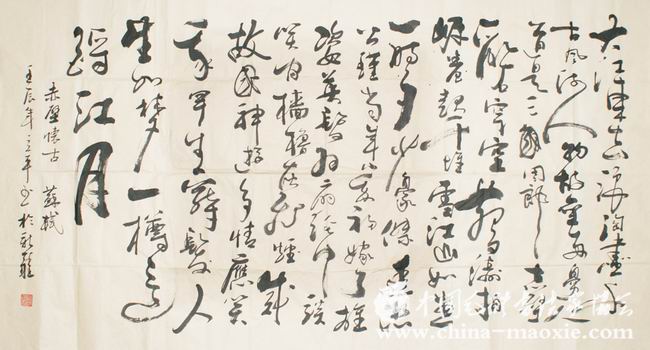 大江東去浪淘盡千
古風流人物故壘西邊人
道是三國周郎赤壁
亂石穿空驚濤拍
岸卷起千堆雪江山如畫
一時多少豪傑遙想
公瑾當年小喬初嫁了雄
姿英發羽扇綸巾談
笑間檣櫓灰飛煙滅
故國神遊多情應笑
我早生華髮人
生如夢一樽還
酹江月
赤壁懷古 蘇軾
壬辰年立平書於新疆
www.china-maoxie.com